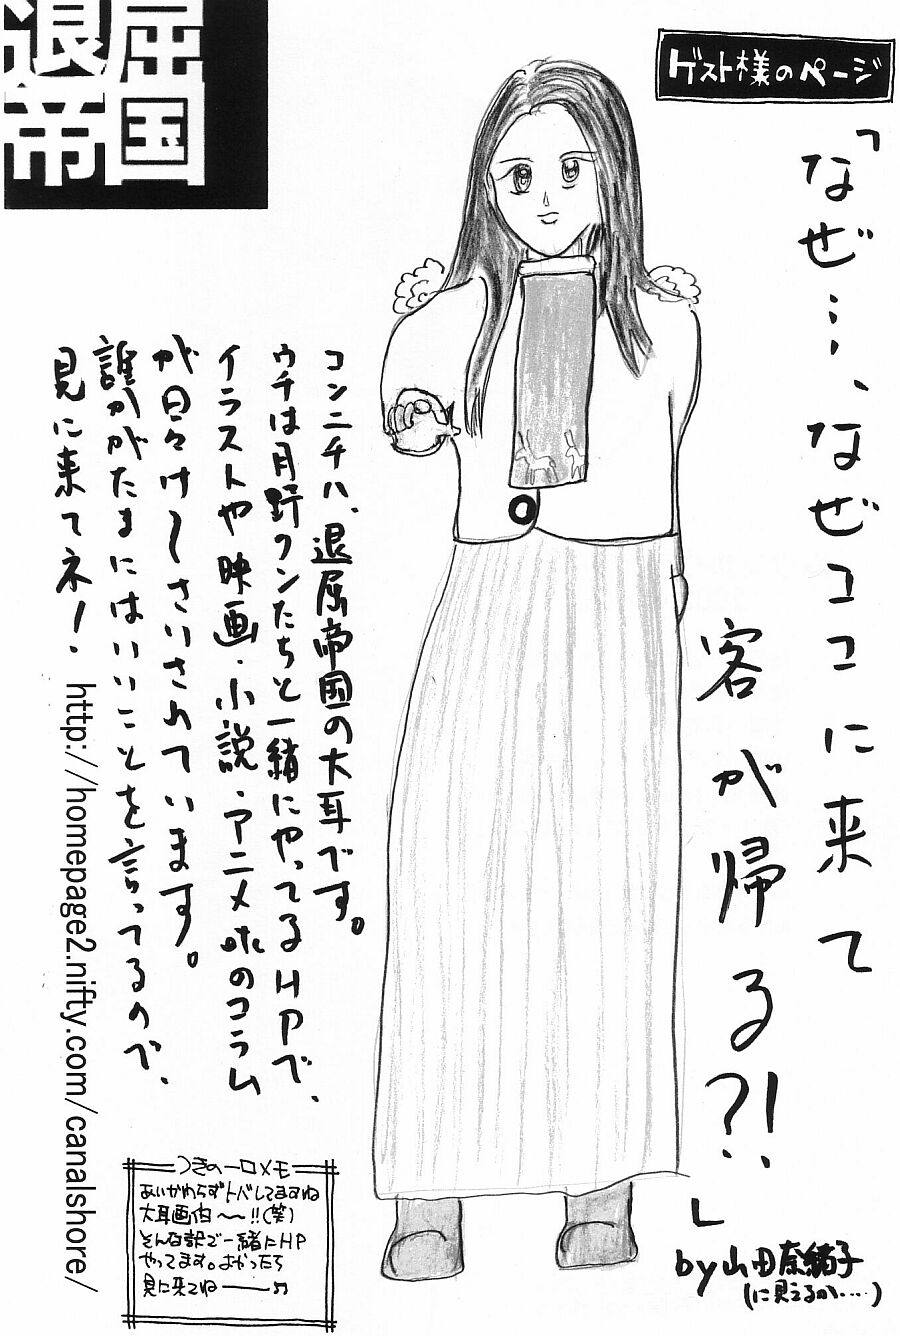 ゲスト様のページ
退屈
帝国
「なぜ…、なぜココに来て
客が帰る?!」
by山田奈緒子
(に見えるか‥‥)
コンニチハ、退屈帝国の大耳です。
ウチは月野クンたちと一緒にやってるHPで、
イラストや映画・小説・アニメetcのコラム
が日々け〜さいされています。
誰かがたまにはいいことを言ってるので、
見に来てネ!
http://homepage2.nifty.com/canalshore/
つきの一口メモ
あいかわらずトバしてますね
大耳画伯〜〜!!(笑)
そんな訳で一緒にHP
やってます。よかったら
見に来てね――♫